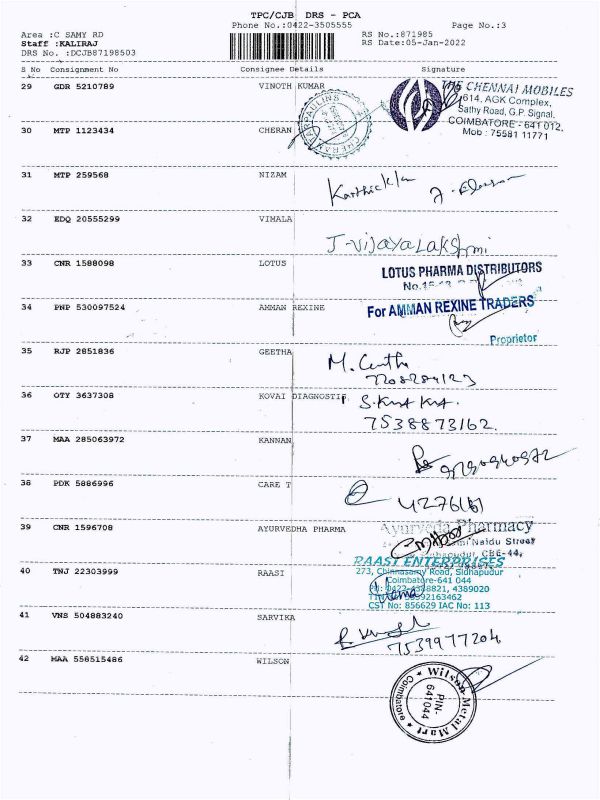 TPC/CJB DRS - PCA
Phone No.:0422-3505555
Page No.:3
Area :C SAMY RD
Staff :KALIRAJ
DRS No. :DCJB87198503
RS No.:871985
RS Date:05-Jan-2022
S No Consignment No Consignee Details Signature
29 GDR 5210789 VINOTH KUMAR
THE CHENNAI MOBILES
614, AGK Complex,
Sathy Road, G.P. Signal,
COIMBATORE - 641 012.
Mob : 75581 11771
30 MTP 1123434 CHERAN
31 MTP 259568 NIZAM
32 EDQ 20555299 VIMALA
J-VIJAYALAKSHMI
33 CNR 1588098 LOTUS
LOTUS PHARMA DISTRIBUTORS
34 PNP 530097524 AMMAN REXINE
For AMMAN REXINE TRADERS
Proprietor
35 RJP 2851836 GEETHA
36 OTY 3637308 KOVAI DIAGNOSTI
7538873162.
37 MAA 285063972 KANNAN
38 PDK 5886996 CARE T
39 CNR 1596708 AYURVEDHA PHARMA
Ayurveda Pharmacy
Naidu Street
CBE-44,
40 TNJ 22303999 RAASI
RAASI ENTERPRISES
273, Chinnasamy Road, Sidhapudur
Coimbatore-641 044
CST No: 856629 IAC No: 113
41 VNS 504883240 SARVIKA
7539977204
42 MAA 558515486 WILSON
Wilson Metal Mart
Coimbatore
PIN-
641044